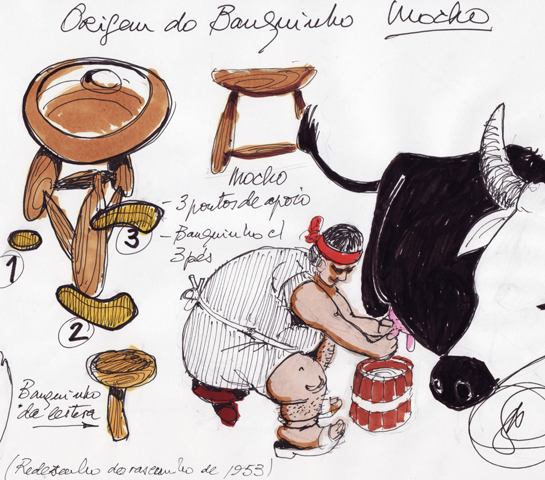 Origem do Banquinho Mocho
Mocho
- 3 pontos de apoio
- Banquinho c/
3 pés
3
1
2
Banquinho
da leitera
(Redesenho do rascunho de 1953)